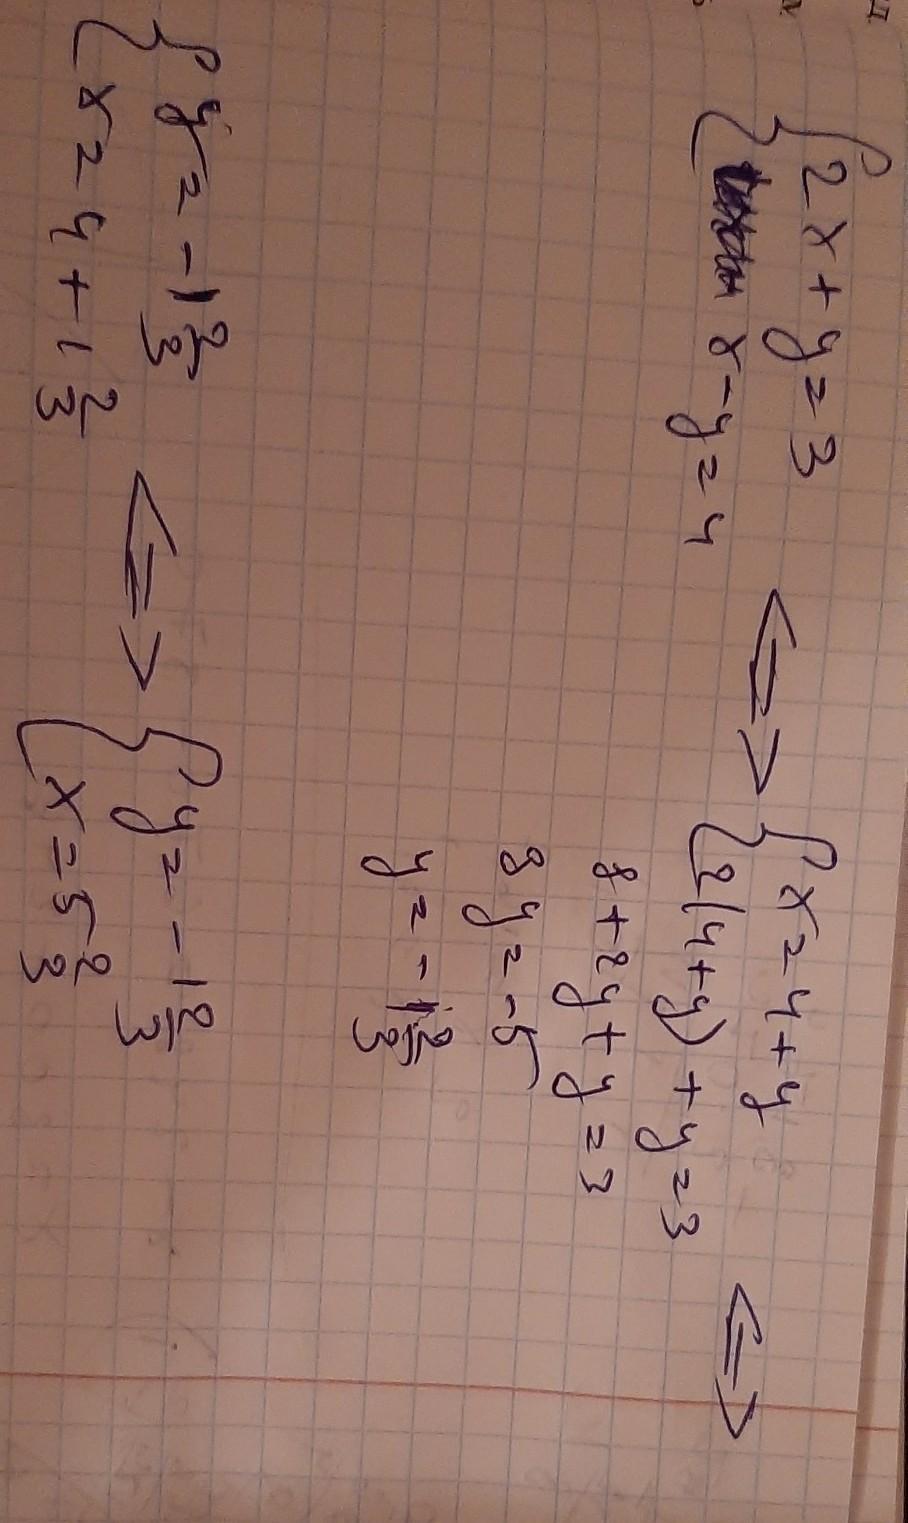 { 2x + y = 3
x - y = 4 <=>
{ x = 4 + y
2(4 + y) + y = 3 <=>
8 + 2y + y = 3
3y = -5
y = -1 2/3
{ y = -1 2/3
x = 4 + 1 2/3 <=>
{ y = -1 2/3
x = 5 2/3